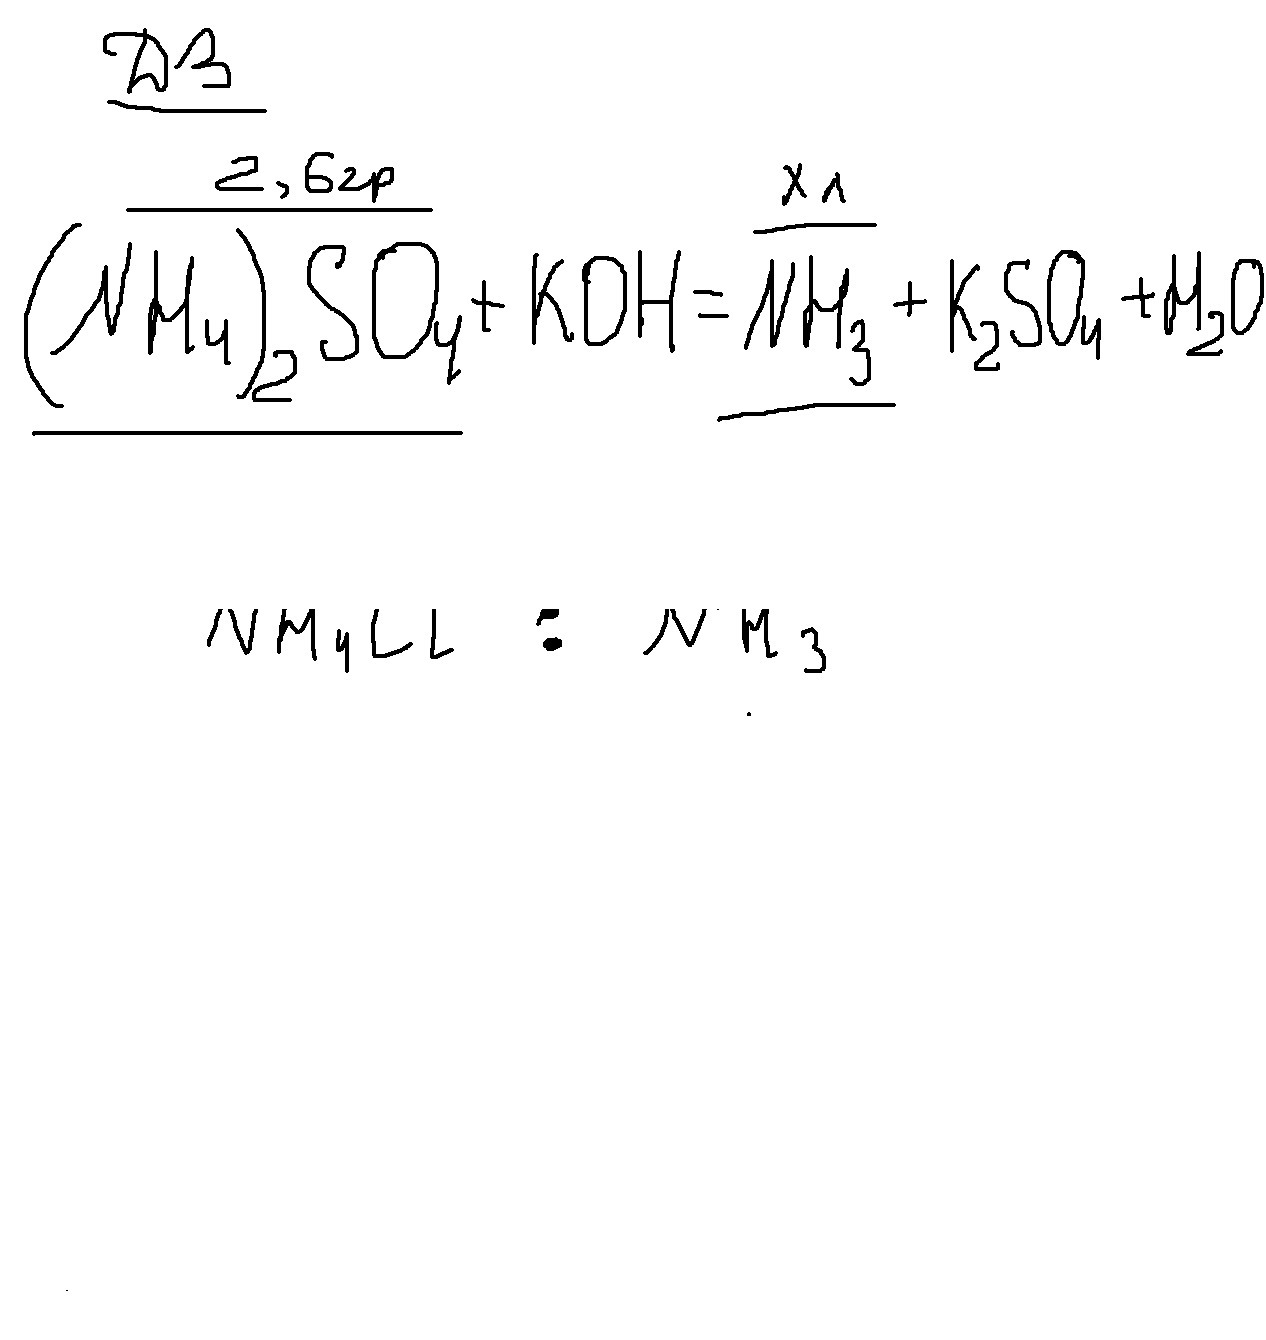 ДЗ
2,6гр хл
(NH₄)₂SO₄ + KOH = NH₃ + K₂SO₄ + H₂O
NH₄CL : NH₃